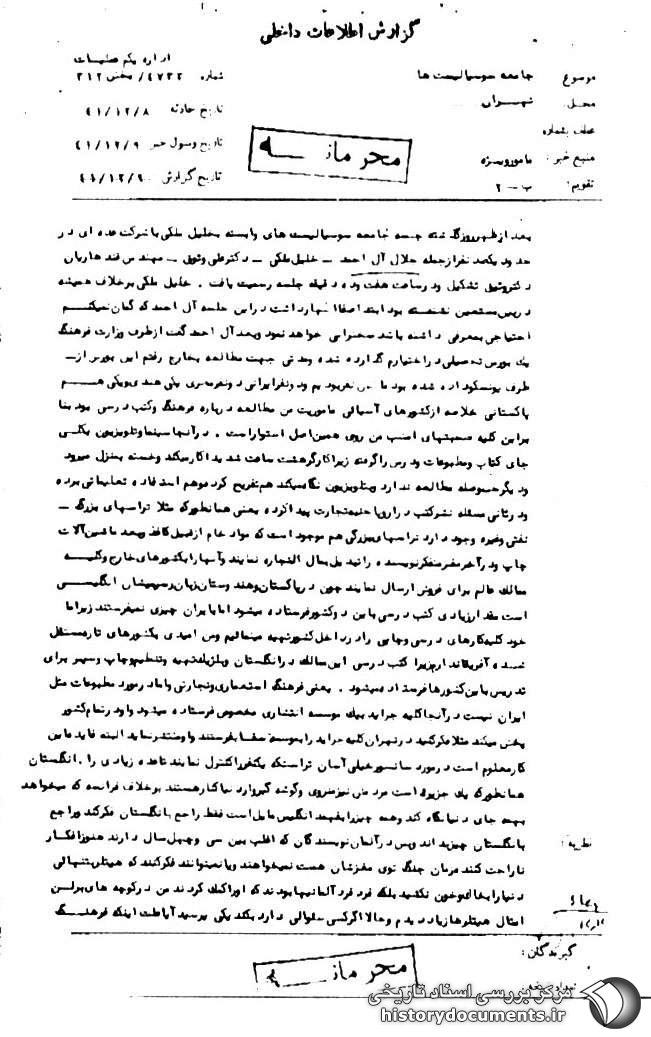 گزارش اطلاعات داخلی
اداره یکم عملیات
شماره ۴۷۳۲/ بخش ۳۱۲
موضوع جامعه سوسیالیست ها
محل تهران
تاریخ حادثه ۴۱/۱۲/۸
عطف بشماره
تاریخ وصول خبر ۴۱/۱۲/۹
منبع خبر: مامور ویژه
تاریخ گزارش ۴۱/۱۲/۹
تقویم: ب - ۲
محرمانه
بعد از ظهر روز گذشته جلسه جامعه سوسیالیست های وابسته بخلیل ملکی با شرکت عده ای در
حدود یکصد نفر از جمله جلال آل احمد - خلیل ملکی - دکتر علی وثوق - مهندس قندهاریان
دکتر وثیق تشکیل و در ساعت هفت و ده دقیقه جلسه رسمیت یافت . خلیل ملکی برخلاف همیشه
در بین مستمعین نشسته بود ابتدا اظهار داشت در این جلسه آل احمد که گمان نمیکنم
احتیاجی بمعرفی داشته باشد سخنرانی خواهد نمود و بعد آل احمد گفت از طرف وزارت فرهنگ
یک بورس تحصیلی در اختیارم گذارده شده و مدتی جهت مطالعه بخارج رفتم این بورس از -
طرف یونسکو داده شده بود ما نفر بودیم دو نفر ایرانی دو نفر مصری یکی هندی و یکی هم
پاکستانی خلاصه از کشورهای آسیائی ماموریت من مطالعه درباره فرهنگ و کتب درسی بود بنا
براین کلیه صحبتهای امشب من روی همین اصل استوار است . در آنجا سینما و تلویزیون بکلی
جای کتاب و مطبوعات و درس را گرفته زیرا کارگر هشت ساعت شدیدا کار میکند و خسته بمنزل میرود
و دیگر حوصله مطالعه ندارد و بتلویزیون نگاه میکند هم تفریح کرده و هم استفاده تعلیماتی برده
و در ثانی مسئله نشر کتب در اروپا جنبه تجارت پیدا کرده یعنی همانطور که مثلا تراستهای بزرگ -
نفتی و غیره وجود دارد تراستهای بزرگی هم موجود است که مواد خام از قبیل کاغذ و بعد ماشین آلات
چاپ و در آخر مغز متفکر نویسنده را تبدیل بمال التجاره نمایند و آنها را بکشورهای خارج و کلیه
ممالک عالم برای فروش ارسال نمایند چون در پاکستان و هندوستان زبان رسمیشان انگلیسی
است مقدار زیادی کتب درسی باین دو کشور فرستاده میشود اما بایران چیزی نمیفرستند زیرا ما
خود کلیه کارهای درسی و چاپی را در داخل کشور تهیه مینمائیم ومن امیدی بکشورهای تازه مستقل
شده آفریقا ندارم زیرا کتب درسی این ممالک در انگلستان و بلژیک تهیه و تنظیم و چاپ و سپس برای
تدریس باین کشورها فرستاده میشود . یعنی فرهنگ استعماری و تجارتی و اما در مورد مطبوعات مثل
ایران نیست در آنجا کلیه جراید بیک موسسه انتشاری مخصوص فرستاده میشود و او در تمام کشور
پخش میکند مثلا فکر کنید در تهران کلیه جراید را بموسسه بفرستند و او منتشر نماید البته فایده این
کار معلوم است در مورد سانسور خیلی آسان تر است که یکنفر را کنترل نمایند تا عده زیادی را . انگلستان
همانطور که یک جزیره است مردمش نیز منزوی و گوشه گیر و ارد دنیا کنار هستند برخلاف فرانسه که میخواهد
بهمه جای دنیا نگاه کند و همه چیز را بفهمد انگلیس مایل است فقط راجع بانگلستان فکر کند و راجع
بانگلستان چیز بداند و پس در آلمان نویسندگان که اغلب بین سی و چهل سال دارند هنوز افکار
ناراحت کننده زمان جنگ توی مغزشان هست نمیخواهند و یا نمیتوانند فکر کنند که هیتلر بتنهائی
دنیا را بخاک و خون نکشید بلکه فرد فرد آلمانیها بودند که او را کمک کردند من در کوچه های برلن
امثال هیتلرها زیاد دیدم و حالا اگر کسی سئوالی دارد بکند یکی پرسید آیا علت اینکه فرهنگ
نظریه:
گیرندگان:
محرمانه
مرکز بررسی اسناد تاریخی
historydocuments.ir